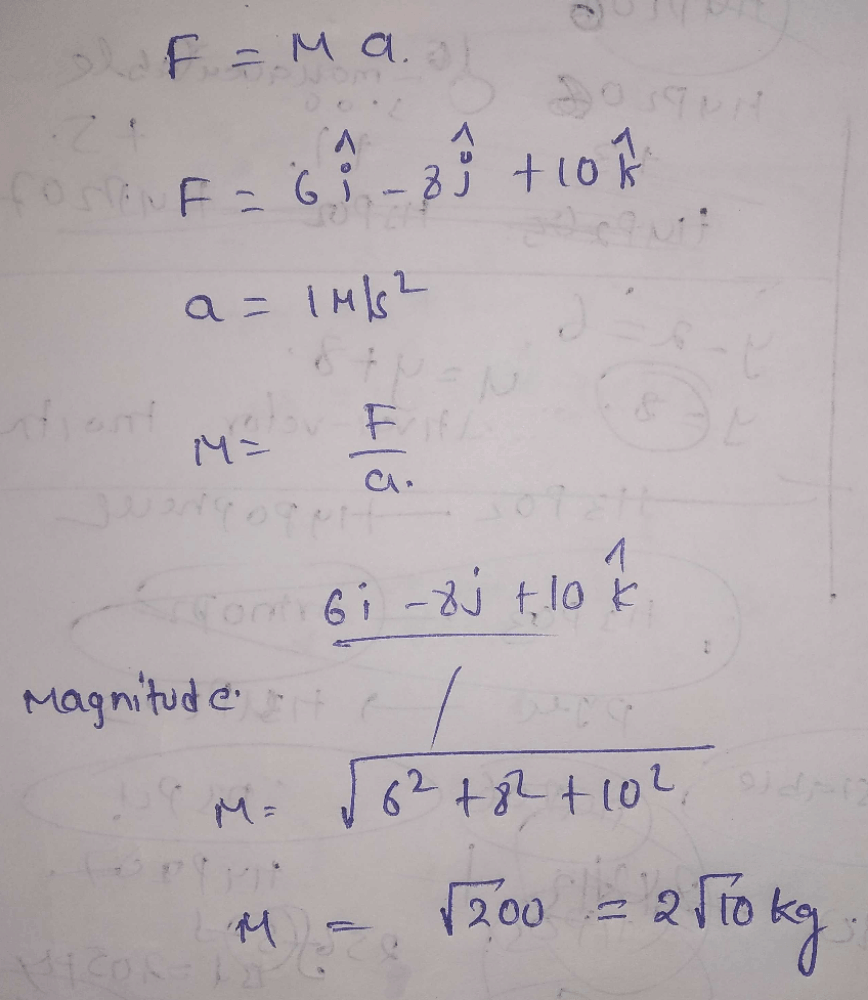 F = M a.
F = 6î - 8ĵ + 10k̂
a = 1M/s²
M = F/a.
6i - 8j + 10k̂
/
Magnitude.
M = √6² + 8² + 10²
M = √200 = 2√10 kg